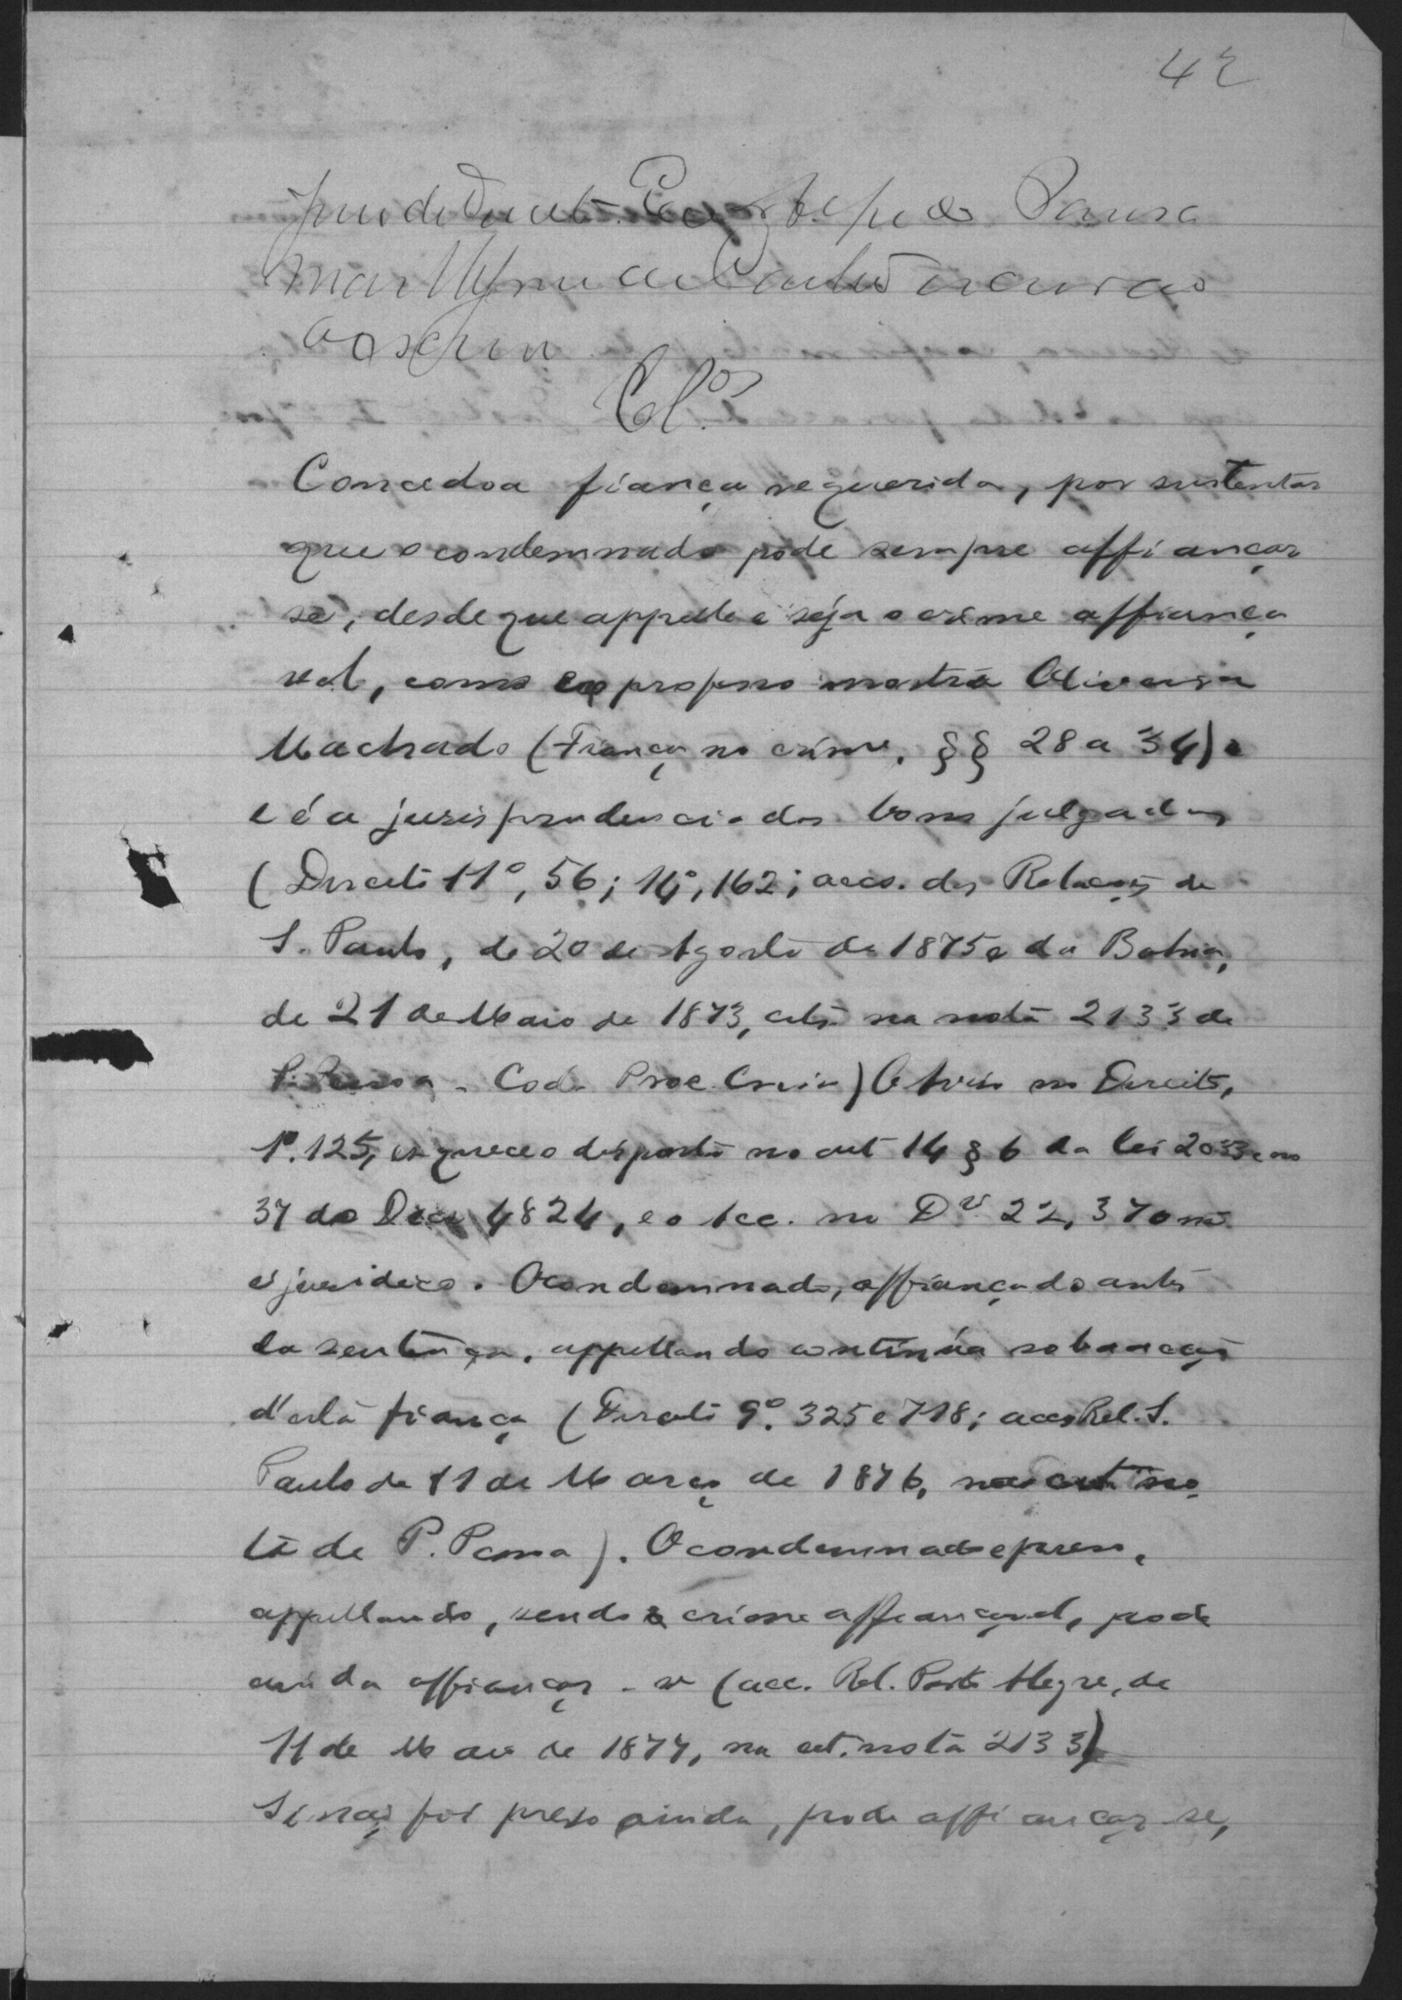 42
Juiz de Direito
escrivão
o escrevi
Cl.os
Concedo a fiança requerida, por sustentar
que o condemnado póde sempre affiançar
se, desde que appelle e seja o crime affiança
vel, como ex professo mostra Oliveira
Machado (Fiança no crime, §§ 28 a 34) e
e é a jurisprudencia dos bons julgados
(Direito 11º, 56; 14º, 162; accs. das Relações de
S. Paulo, de 20 de Agosto de 1875 e da Bahia,
de 21 de Maio de 1873, cits. na nota 2133 de
P. Pessoa - Cod. Proc. Crim.) O Aviso no Direito,
1º. 125, esquece o disposto no art 14 § 6 da lei 2033 e no
37 do Dec. 4824, e o Acc. no D.to 22, 370 não
é juridico. O condemnado, affiançado antes
da sentença, appellando continúa sob a acção
d'esta fiança (Direito 9º. 325 e 718; acc. Rel. S.
Paulo de 11 de Março de 1876, na cit. no
ta de P. Pessoa). O condemnado e preso,
appellando, sendo o crime affiançavel, pode
ainda affiançar-se (acc. Rel. Porto Alegre, de
11 de Maio de 1877, na cit. nota 2133)
Si não foi preso ainda, pode affiançar-se,